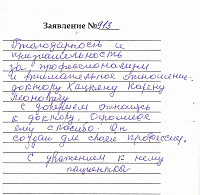 Заявление № 913
Благодарность и
признательность
за профессионализм
и внимательное отношение
доктору Кагену
Леоновичу
с доверием отношусь
к доктору. Огромное
ему спасибо. Он
создан для своей профессии.
С уважением к нему
пациентка